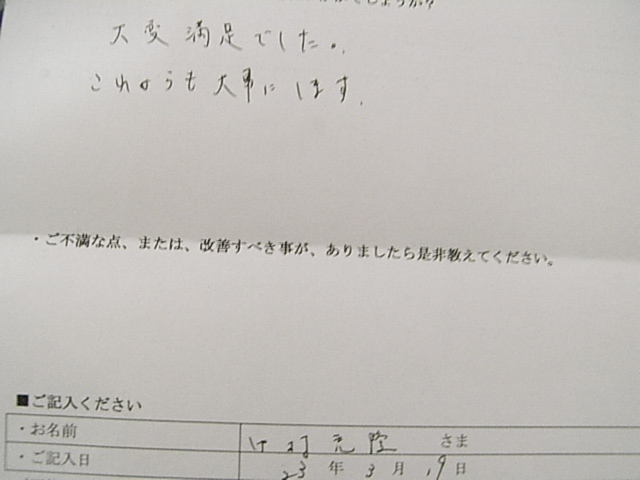 でしょうか?
大変満足でした。
これよりも大事にします。
・ご不満な点、または、改善すべき事が、ありましたら是非教えてください。
■ご記入ください
・お名前 さま
・ご記入日 23年3月19日